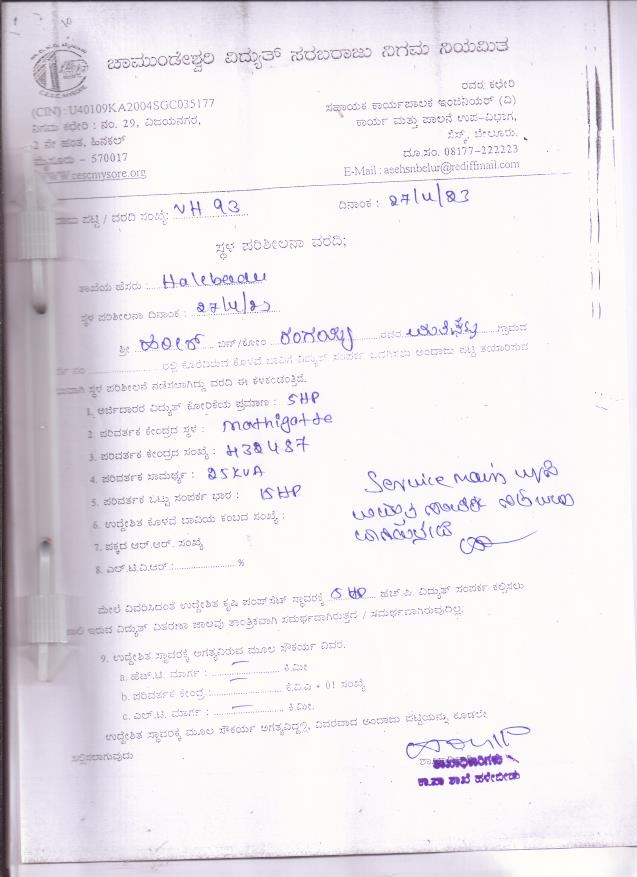 ಚಾಮುಂಡೇಶ್ವರಿ ವಿದ್ಯುತ್ ಸರಬರಾಜು ನಿಗಮ ನಿಯಮಿತ
(CIN) : U40109KA2004SGC035177
ನಿಗಮ ಕಛೇರಿ : ನಂ. 29, ವಿಜಯನಗರ,
2 ನೇ ಹಂತ, ಹಿನಕಲ್
ಮೈಸೂರು – 570017
www.cescmysore.org
ರವರ ಕಛೇರಿ
ಸಹಾಯಕ ಕಾರ್ಯಪಾಲಕ ಇಂಜಿನಿಯರ್ (ವಿ)
ಕಾರ್ಯ ಮತ್ತು ಪಾಲನೆ ಉಪ-ವಿಭಾಗ,
ಸೆಸ್ಕ್, ಬೇಲೂರು.
ದೂ.ಸಂ. 08177-222223
E-Mail : aeehsnbelur@rediffmail.com
ಪಟ್ಟಿ / ವರದಿ ಸಂಖ್ಯೆ: VH 93 ದಿನಾಂಕ : 27/4/23
ಸ್ಥಳ ಪರಿಶೀಲನಾ ವರದಿ;
ಶಾಖೆಯ ಹೆಸರು : Halebeedu
ಸ್ಥಳ ಪರಿಶೀಲನಾ ದಿನಾಂಕ : 27/4/23
ಶ್ರೀ ಬಿನ್/ಕೋಂ ರಂಗಯ್ಯ ರವರ ಗ್ರಾಮದ
ರಲ್ಲಿ ಕೊರೆದಿರುವ ಕೊಳವೆ ಬಾವಿಗೆ ವಿದ್ಯುತ್ ಸಂಪರ್ಕ ಒದಗಿಸಲು ಅಂದಾಜು ಪಟ್ಟಿ ತಯಾರಿಸುವ
ಸ್ಥಳ ಪರಿಶೀಲನೆ ನಡೆಸಲಾಗಿದ್ದು ವರದಿ ಈ ಕೆಳಕಂಡಂತ್ತಿದೆ.
1. ಅರ್ಜಿದಾರರ ವಿದ್ಯುತ್ ಕೋರಿಕೆಯ ಪ್ರಮಾಣ : 5HP
2. ಪರಿವರ್ತಕ ಕೇಂದ್ರದ ಸ್ಥಳ : Mathigatte
3. ಪರಿವರ್ತಕ ಕೇಂದ್ರದ ಸಂಖ್ಯೆ : H32487
4. ಪರಿವರ್ತಕ ಸಾಮರ್ಥ್ಯ : 25KVA
5. ಪರಿವರ್ತಕ ಒಟ್ಟು ಸಂಪರ್ಕ ಭಾರ : 15HP
6. ಉದ್ದೇಶಿತ ಕೊಳವೆ ಬಾವಿಯ ಕಂಬದ ಸಂಖ್ಯೆ :
7. ಪಕ್ಕದ ಆರ್.ಆರ್. ಸಂಖ್ಯೆ
8. ಎಲ್.ಟಿ.ವಿ.ಆರ್ : %
Service main
ಮೇಲೆ ವಿವರಿಸಿದಂತೆ ಉದ್ದೇಶಿತ ಕೃಷಿ ಪಂಪ್‌ಸೆಟ್ ಸ್ಥಾವರಕ್ಕೆ 5HP ಹೆಚ್.ಪಿ. ವಿದ್ಯುತ್ ಸಂಪರ್ಕ ಕಲ್ಪಿಸಲು
ಇರುವ ವಿದ್ಯುತ್ ವಿತರಣಾ ಜಾಲವು ತಾಂತ್ರಿಕವಾಗಿ ಸಮರ್ಥದಾಗಿರುತ್ತದೆ / ಸಮರ್ಥಣಾಗಿರುವುದಿಲ್ಲ.
9. ಉದ್ದೇಶಿತ ಸ್ಥಾವರಕ್ಕೆ ಅಗತ್ಯವಿರುವ ಮೂಲ ಸೌಕರ್ಯ ವಿವರ.
a. ಹೆಚ್.ಟಿ. ಮಾರ್ಗ : – ಕಿ.ಮೀ
b. ಪರಿವರ್ತಕ ಕೇಂದ್ರ : – ಕೆ.ವಿ.ಎ * 01 ಸಂಖ್ಯೆ
c. ಎಲ್.ಟಿ. ಮಾರ್ಗ : – ಕಿ.ಮೀ.
ಉದ್ದೇಶಿತ ಸ್ಥಾವರಕ್ಕೆ ಮೂಲ ಸೌಕರ್ಯ ಅಗತ್ಯವಿದ್ದಲ್ಲಿ, ವಿವರವಾದ ಅಂದಾಜು ಪಟ್ಟಿಯನ್ನು ಕೂಡಲೇ
ಸಲ್ಲಿಸಲಾಗುವುದು
ಶಾಖಾಧಿಕಾರಿಗಳು
ಕಾ.ಪಾ ಶಾಖೆ ಹಳೇಬೀಡು